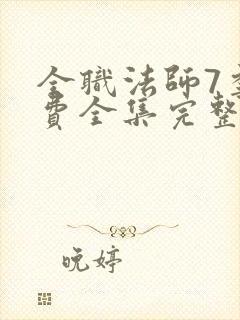 全職法師7季
費全集完整
晚婷